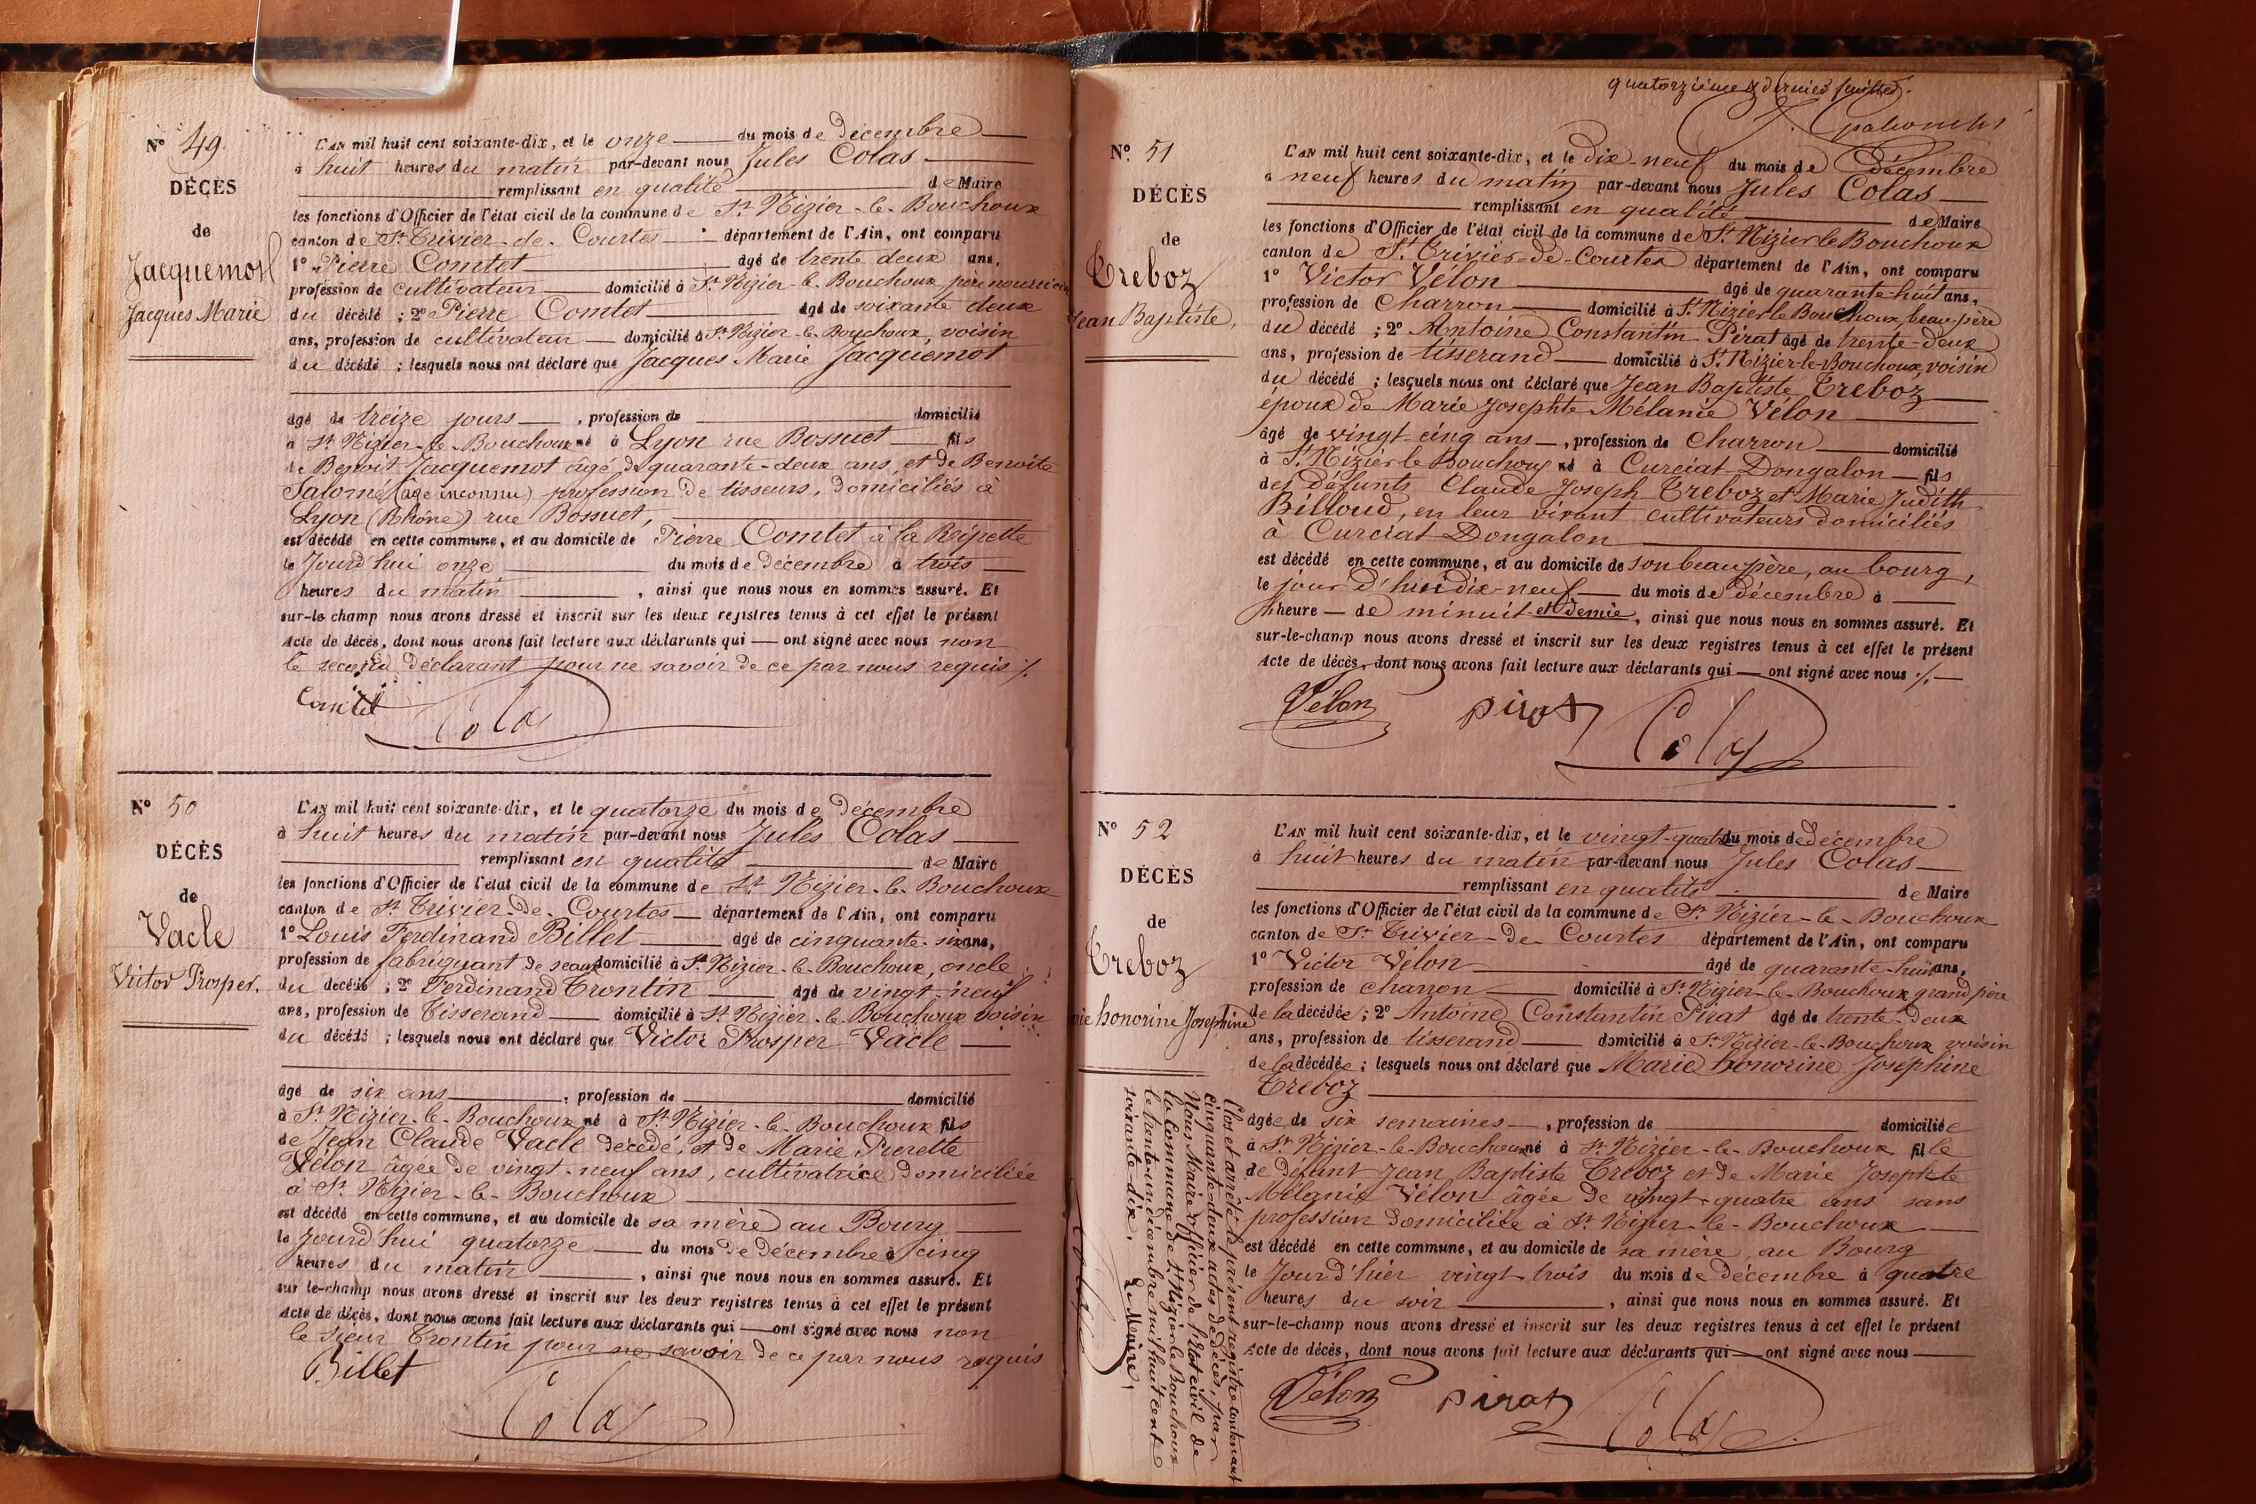 Nº 49.
DÉCÈS
de
Jacquemot
Jacques Marie
L'AN mil huit cent soixante-dix, et le onze du mois de décembre
à huit heures du matin par-devant nous Jules Colas
remplissant en qualité de Maire
les fonctions d'Officier de l'état civil de la commune de St Nizier-le-Bouchoux
canton de St Trivier-de-Courtes département de l'Ain, ont comparu
1º Pierre Comtet âgé de trente deux ans,
profession de cultivateur domicilié à St Nizier-le-Bouchoux père nourricier
du décédé ; 2º Pierre Comtet âgé de soixante deux
ans, profession de cultivateur domicilié à St Nizier-le-Bouchoux, voisin
du décédé ; lesquels nous ont déclaré que Jacques Marie Jacquemot
âgé de treize jours, profession de domicilié
à St Nizier-le-Bouchoux né à Lyon rue Bossuet fils
de Benoit Jacquemot âgé de quarante-deux ans, et de Benoite
Salomé (âge inconnu) profession de tisseurs, domiciliés à
Lyon (Rhône) rue Bossuet,
est décédé en cette commune, et au domicile de Pierre Comtet à la
le Jourd'hui onze du mois de décembre à trois
heures du matin, ainsi que nous nous en sommes assuré. Et
sur-le-champ nous avons dressé et inscrit sur les deux registres tenus à cet effet le présent
Acte de décès, dont nous avons fait lecture aux déclarants qui ont signé avec nous non
le second déclarant pour ne savoir de ce par nous requis ./.
Comtet Colas
Nº 50
DÉCÈS
de
Vacle
Victor Prosper.
L'AN mil huit cent soixante-dix, et le quatorze du mois de décembre
à huit heures du matin par-devant nous Jules Colas
remplissant en qualité de Maire
les fonctions d'Officier de l'état civil de la commune de St Nizier-le-Bouchoux
canton de St Trivier-de-Courtes département de l'Ain, ont comparu
1º Louis Ferdinand Billet âgé de cinquante-six ans,
profession de fabriquant de seaux domicilié à St Nizier-le-Bouchoux, oncle
du décédé ; 2º Ferdinand Trontin âgé de vingt-neuf
ans, profession de Tisserand domicilié à St Nizier-le-Bouchoux voisin
du décédé ; lesquels nous ont déclaré que Victor Prosper Vacle
âgé de six ans, profession de domicilié
à St Nizier-le-Bouchoux né à St Nizier-le-Bouchoux fils
de Jean Claude Vacle décédé, et de Marie Pierette
Vélon âgée de vingt-neuf ans, cultivatrice domiciliée
à St Nizier-le-Bouchoux
est décédé en cette commune, et au domicile de sa mère au Bourg
le Jourd'hui quatorze du mois de décembre à cinq
heures du matin, ainsi que nous nous en sommes assuré. Et
sur-le-champ nous avons dressé et inscrit sur les deux registres tenus à cet effet le présent
Acte de décès, dont nous avons fait lecture aux déclarants qui ont signé avec nous non
le sieur Trontin pour ne savoir de ce par nous requis
Billet Colas
quatorzième & dernier feuillet.
Nº. 51
DÉCÈS
de
Treboz
Jean Baptiste,
L'AN mil huit cent soixante-dix, et le dix-neuf du mois de décembre
à neuf heures du matin par-devant nous Jules Colas
remplissant en qualité de Maire
les fonctions d'Officier de l'état civil de la commune de St Nizier le Bouchoux
canton de St Trivier-de-Courtes département de l'Ain, ont comparu
1º Victor Vélon âgé de quarante-huit ans,
profession de Charron domicilié à St Nizier le Bouchoux, beau-père
du décédé ; 2º Antoine Constantin Pirat âgé de trente-deux
ans, profession de tisserand domicilié à St Nizier-le-Bouchoux, voisin
du décédé ; lesquels nous ont déclaré que Jean Baptiste Treboz
époux de Marie Josephte Mélanie Vélon
âgé de vingt-cinq ans, profession de Charron domicilié
à St Nizier le Bouchoux né à Curciat-Dongalon fils
des défunts Claude Joseph Treboz et Marie Judith
Billoud, en leur vivant cultivateurs domiciliés
à Curciat-Dongalon
est décédé en cette commune, et au domicile de son beau père, au bourg,
le jour d'hui dix-neuf du mois de décembre à
heure de minuit et demie, ainsi que nous nous en sommes assuré. Et
sur-le-champ nous avons dressé et inscrit sur les deux registres tenus à cet effet le présent
Acte de décès, dont nous avons fait lecture aux déclarants qui ont signé avec nous ./.
Vélon pirat Colas
Nº 52
DÉCÈS
de
Treboz
rie honorine Josephine
L'AN mil huit cent soixante-dix, et le vingt-quatre du mois de décembre
à huit heures du matin par-devant nous Jules Colas
remplissant en qualité de Maire
les fonctions d'Officier de l'état civil de la commune de St Nizier-le-Bouchoux
canton de St Trivier-de-Courtes département de l'Ain, ont comparu
1º Victor Vélon âgé de quarante-huit ans,
profession de charron domicilié à St Nizier-le-Bouchoux grand père
de la décédée ; 2º Antoine Constantin Pirat âgé de trente-deux
ans, profession de tisserand domicilié à St Nizier-le-Bouchoux voisin
de la décédée ; lesquels nous ont déclaré que Marie honorine Joséphine
Treboz
âgée de six semaines, profession de domiciliée
à St Nizier-le-Bouchoux né à St Nizier-le-Bouchoux fille
de défunt Jean Baptiste Treboz et de Marie Josephte
Mélanie Vélon âgée de vingt-quatre ans sans
profession domiciliée à St Nizier-le-Bouchoux
est décédé en cette commune, et au domicile de sa mère, au Bourg
le Jour d'hier vingt-trois du mois de décembre à quatre
heures du soir, ainsi que nous nous en sommes assuré. Et
sur-le-champ nous avons dressé et inscrit sur les deux registres tenus à cet effet le présent
Acte de décès, dont nous avons fait lecture aux déclarants qui ont signé avec nous
Vélon pirat Colas
Clos et arrêté le présent registre contenant
cinquante-deux actes de décès, par
Nous, Maire, officier de l'état civil de
la Commune de St Nizier-le-Bouchoux
le trente-un décembre mil huit cent
soixante-dix.
Le Maire,
Colas